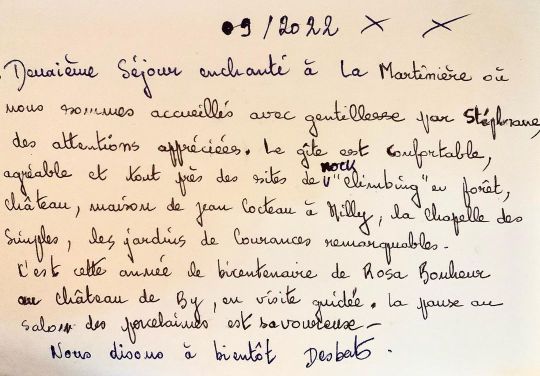 09/2022 X X
Deuxième Séjour enchanté à La Martinière où
nous sommes accueillés avec gentillesse par Stéphane,
des attentions appréciées. Le gîte est confortable,
agréable et tout près des sites de rock "climbing" en forêt,
château, maison de Jean Cocteau à Milly, la chapelle des
Simples, les jardins de Courances remarquables.
C'est cette année le bicentenaire de Rosa Bonheur
au château de By, en visite guidée. La pause au
salon des porcelaines est savoureuse -
Nous disons à bientôt